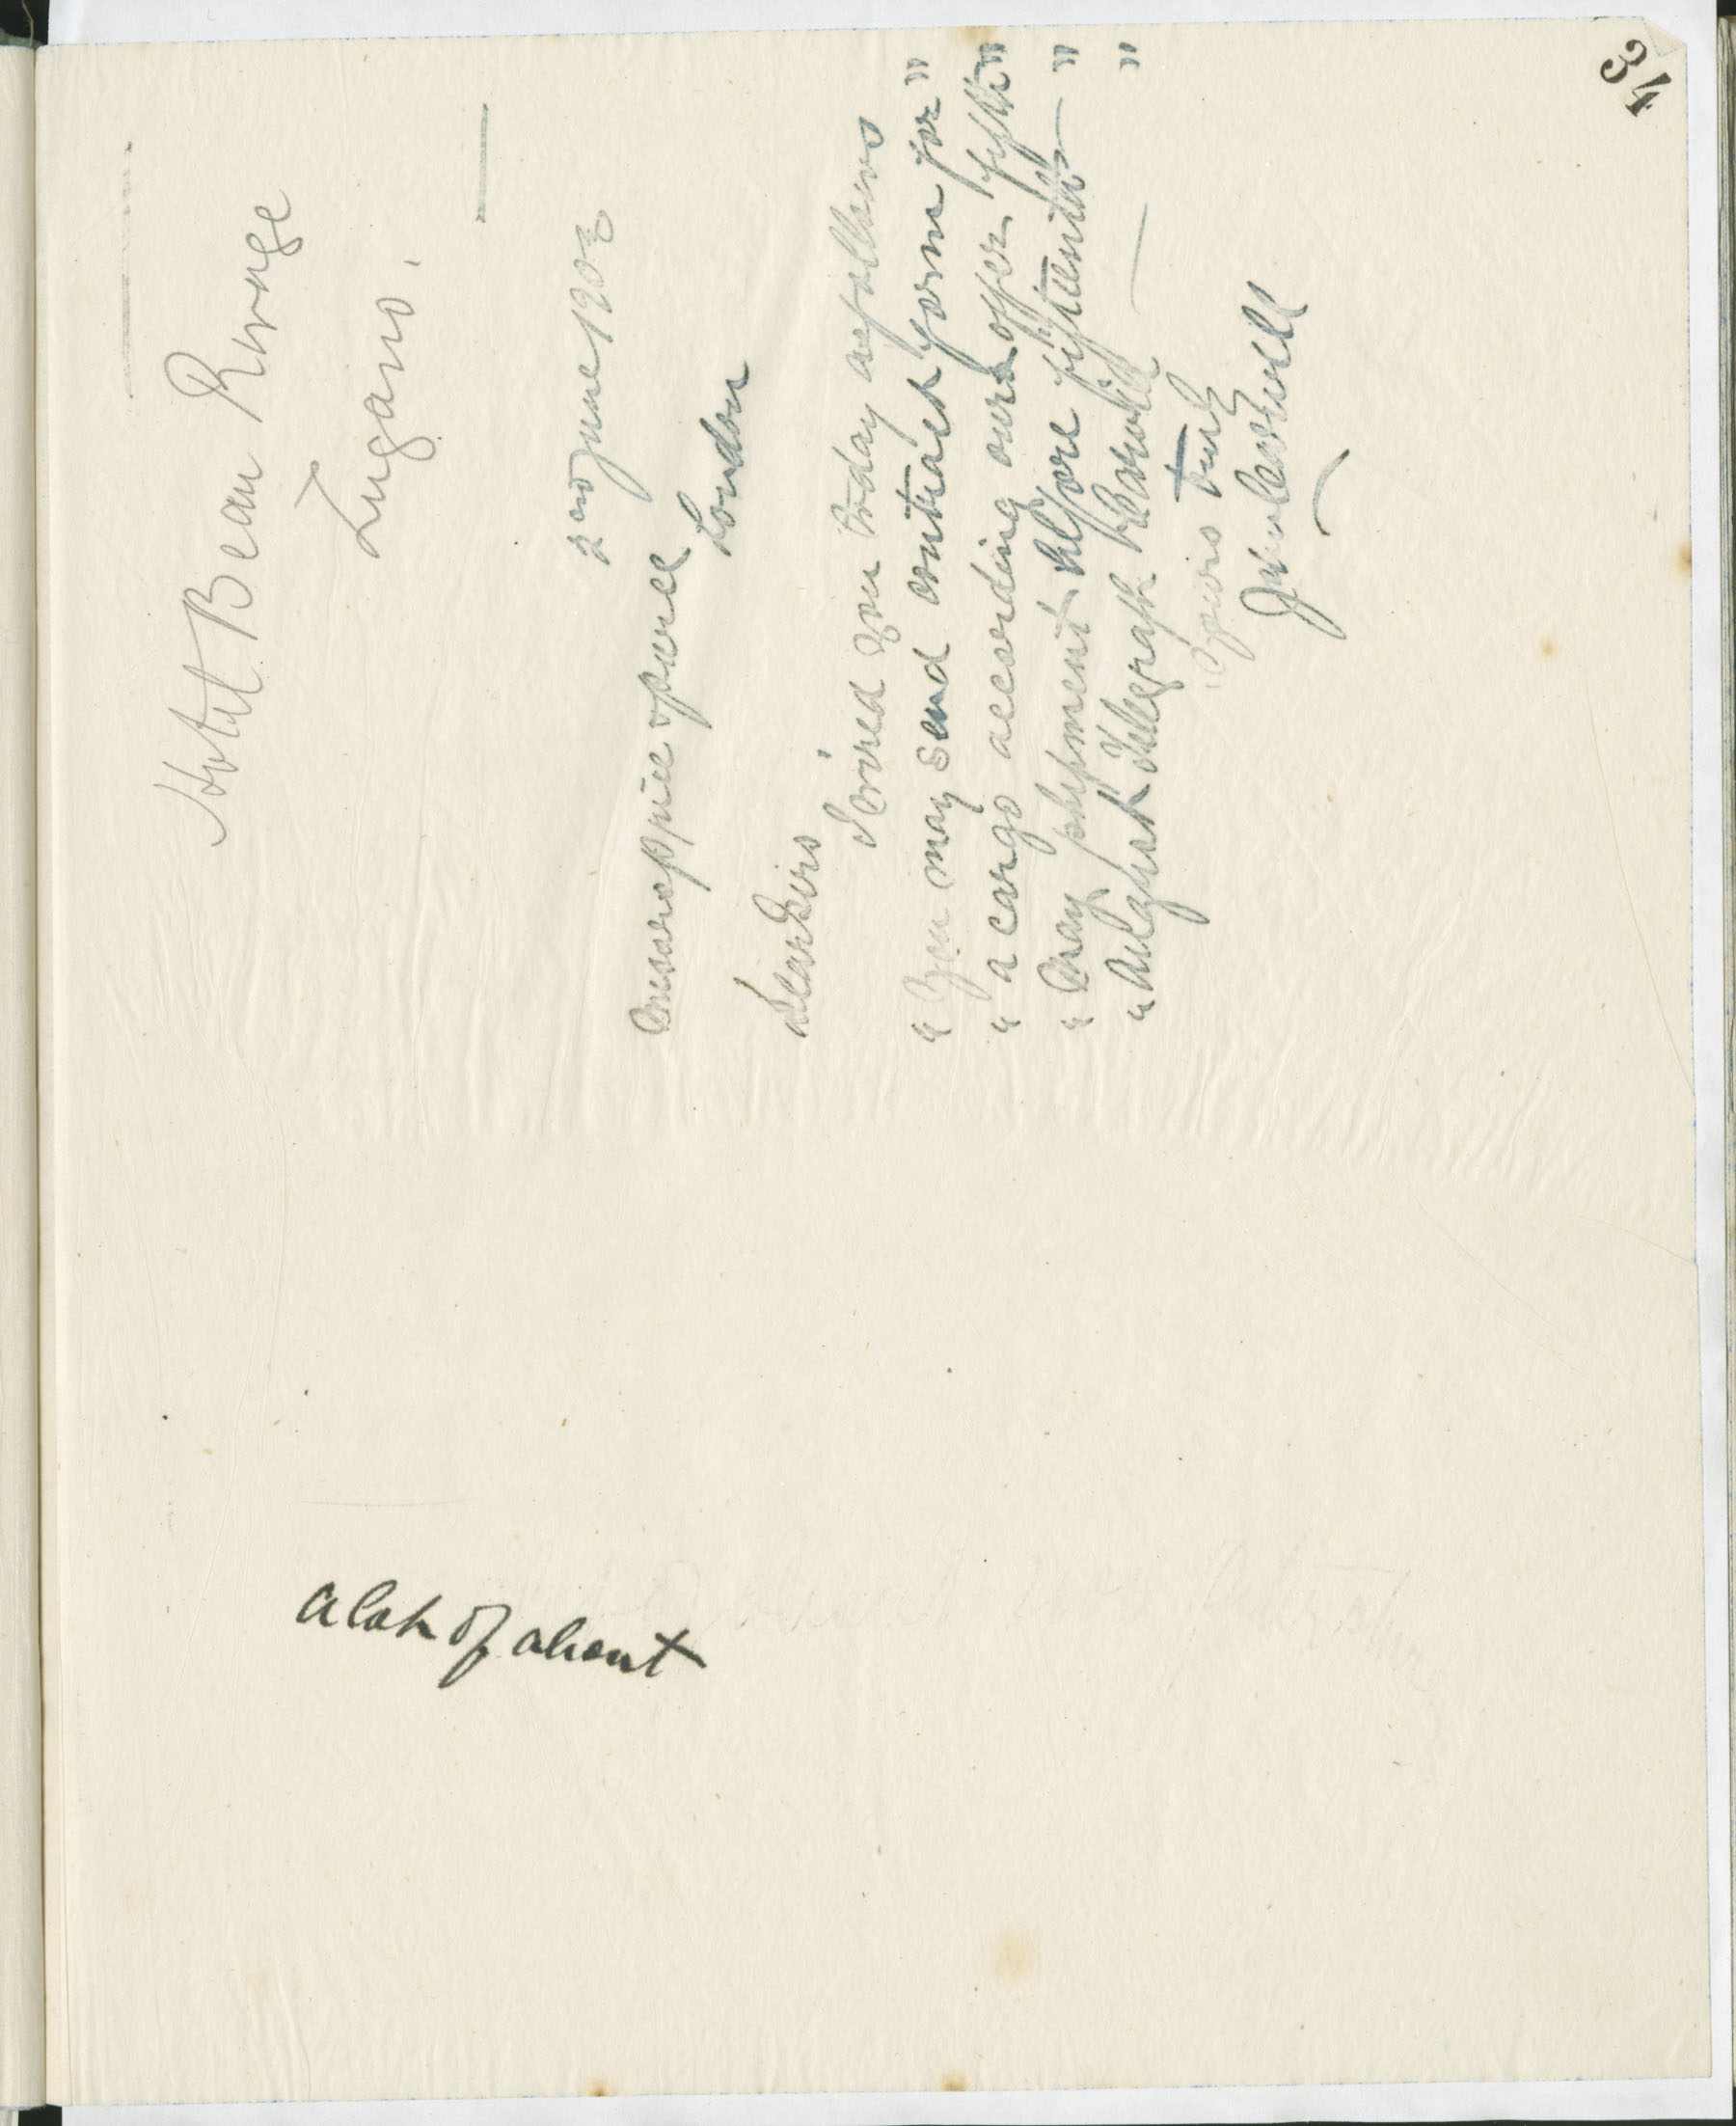 34
Hotel Beau Rivage
Lugano.
2nd June 1903
Messrs Price & Pierce
London
Dear Sirs
I wired you today as follows
"You may send contract form for"
"a cargo according our offer fifth"
"May shipment before fifteenth"
"August Telegraph
Yours truly
a lot of about